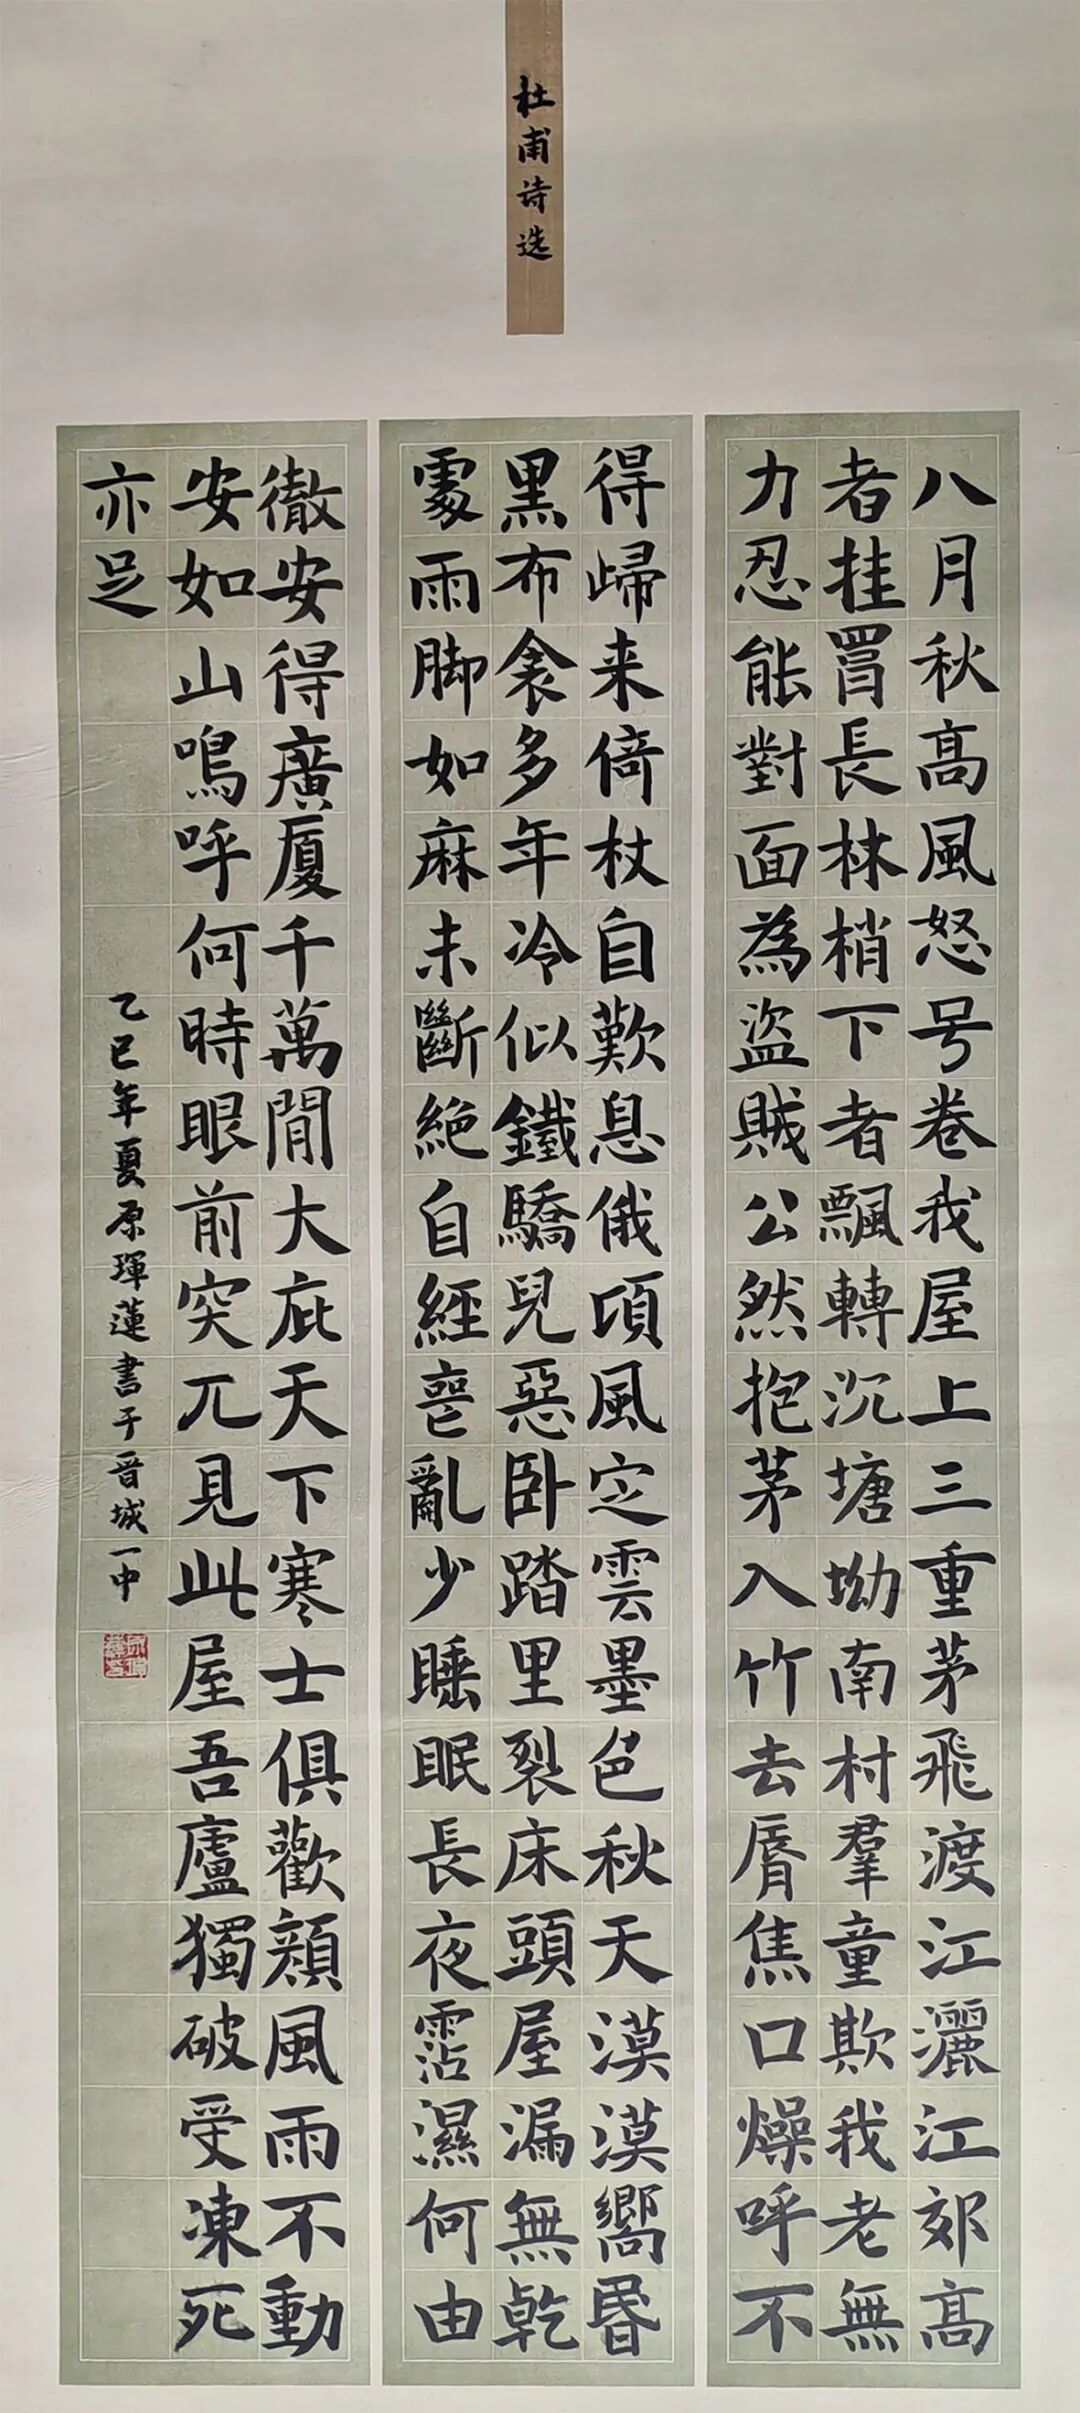 杜甫诗选
八月秋高風怒号卷我屋上三重茅飛渡江灑江郊高
者挂罥長林梢下者飄轉沉塘坳南村羣童欺我老無
力忍能對面為盜賊公然抱茅入竹去脣焦口燥呼不
得歸来倚杖自歎息俄頃風定雲墨色秋天漠漠嚮昏
黑布衾多年冷似鐵驕兒惡卧踏里裂床頭屋漏無乾
處雨脚如麻未斷絕自經喪亂少睡眠長夜霑濕何由
徹安得廣厦千萬間大庇天下寒士俱歡顏風雨不動
安如山嗚呼何時眼前突兀見此屋吾廬獨破受凍死
亦足
乙巳年夏原琿蓮書于晋城一中